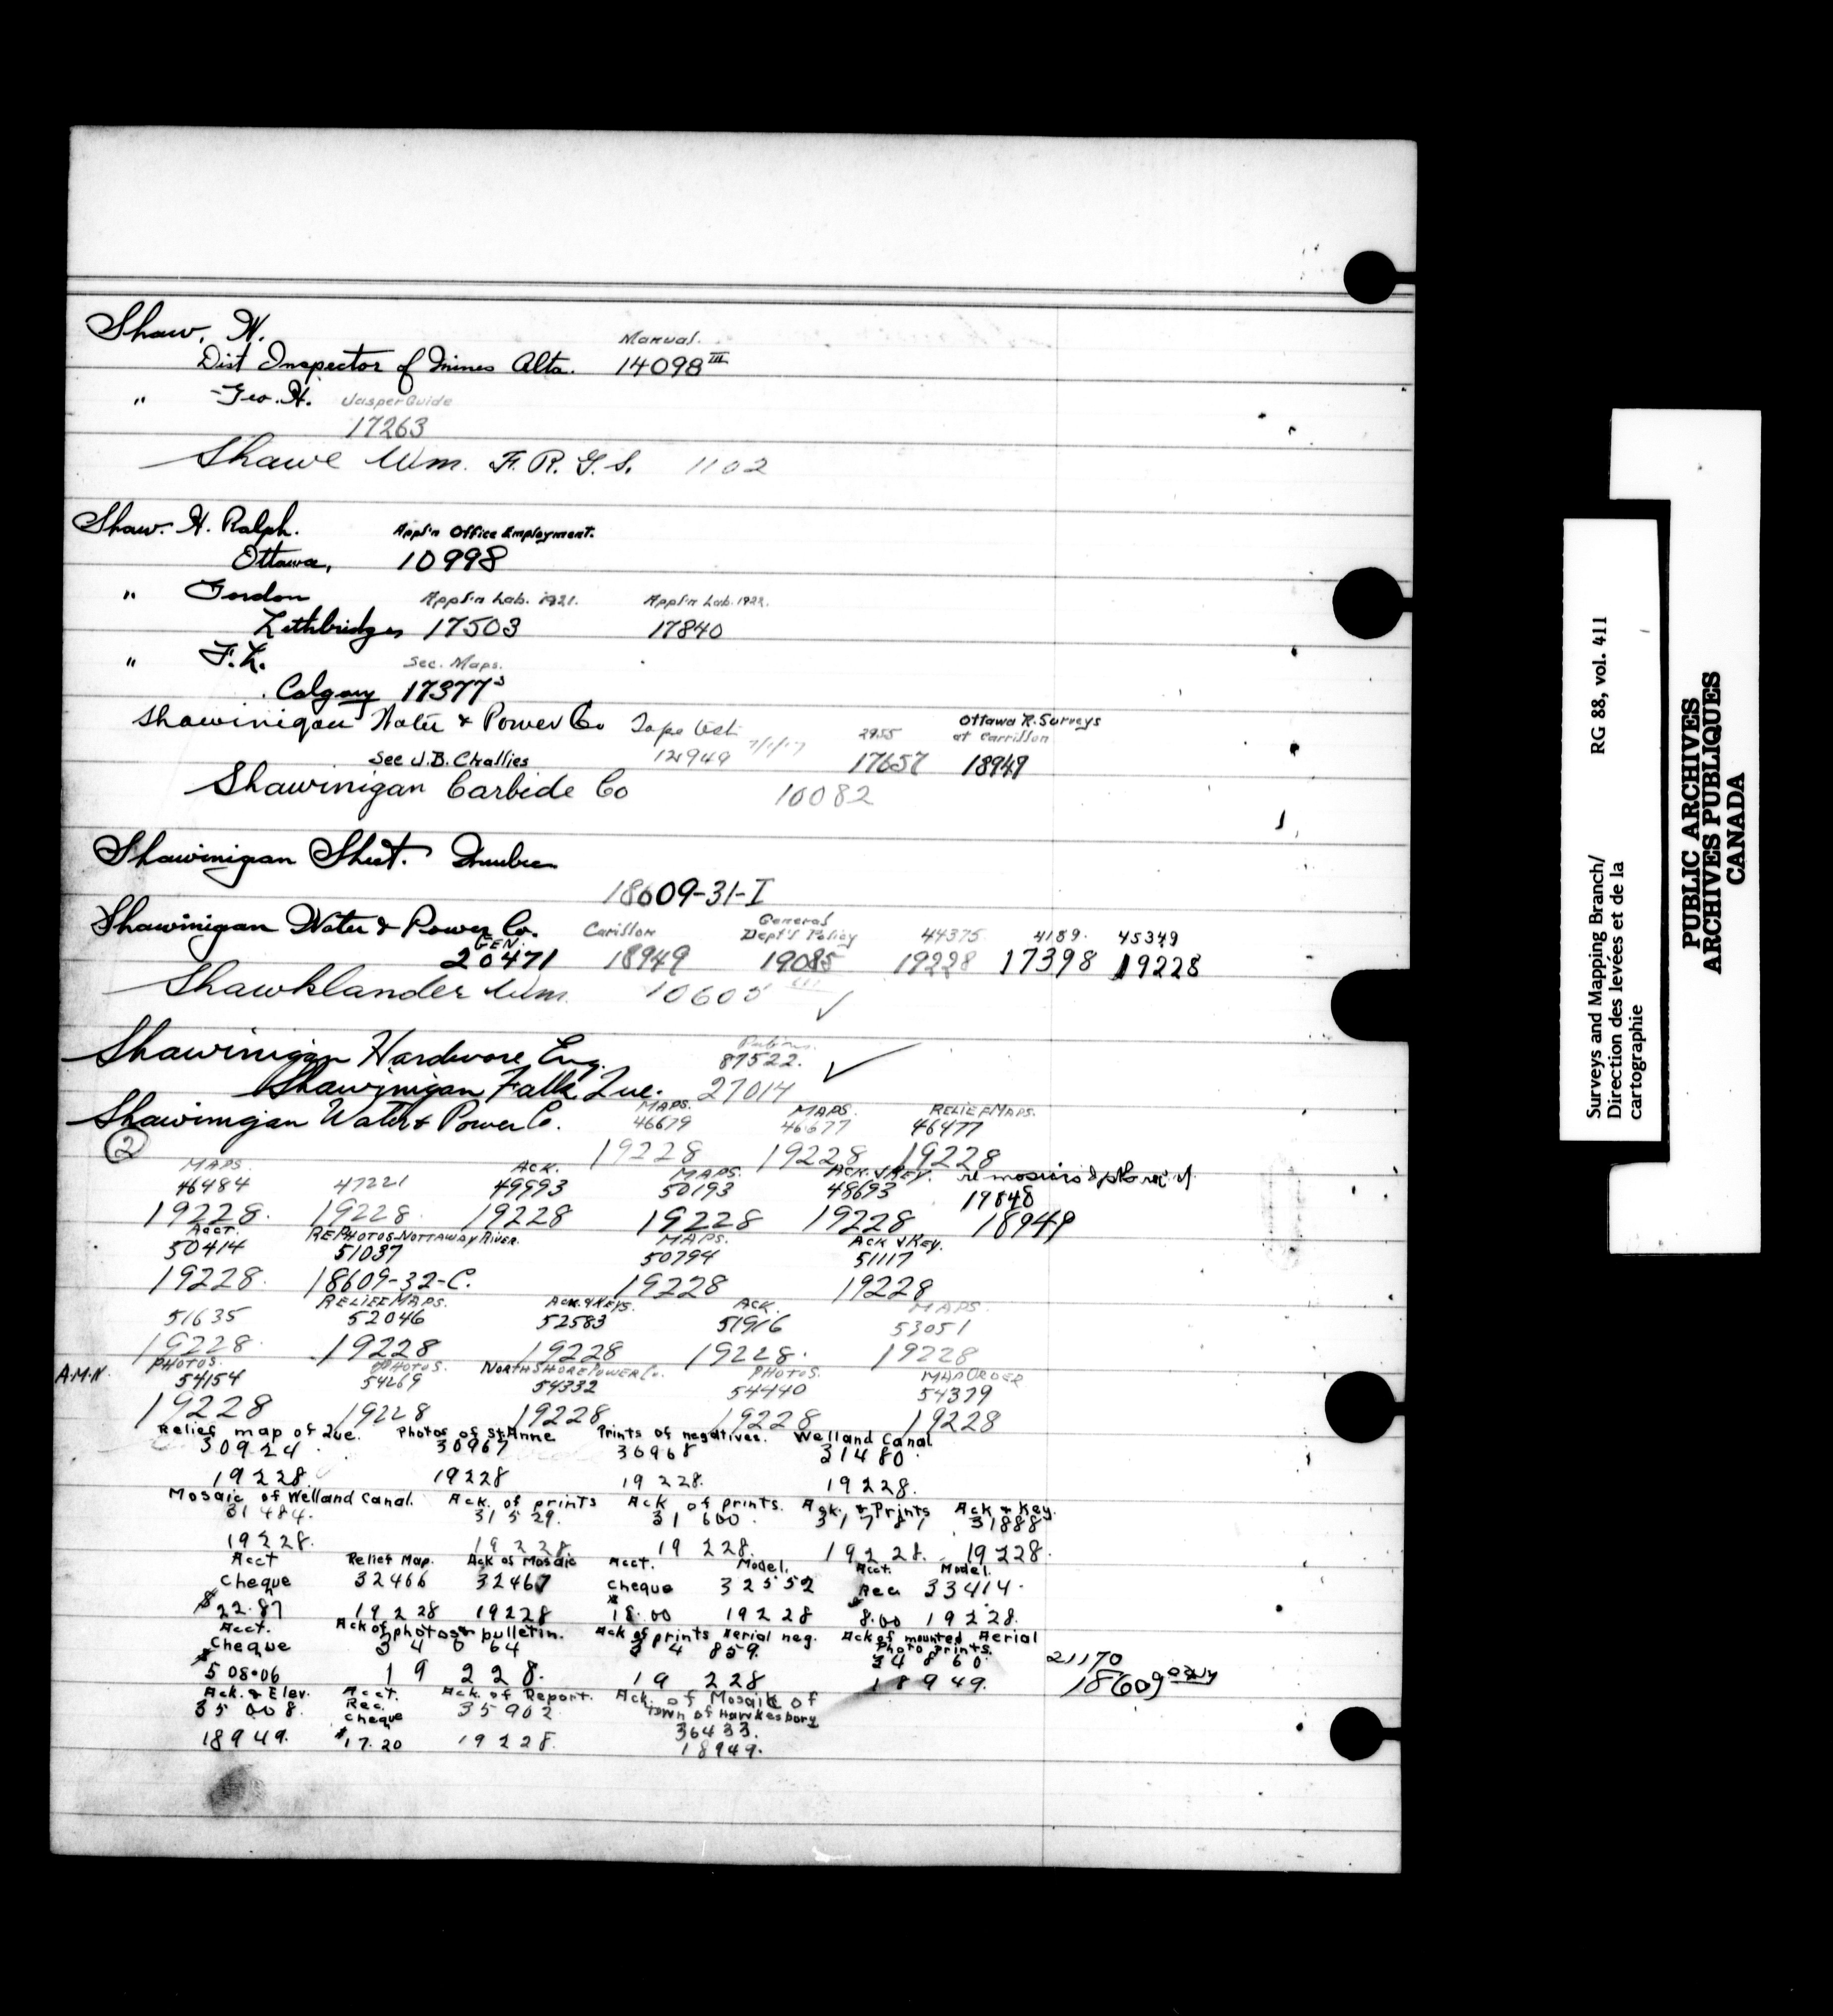 Shaw, W.
Manual.
Dist Inspector of Mines Alta. 14098 III
" Geo. H. Jasper Guide
17263
Shawe Wm. F. R. G. S. 1102
Shaw. H. Ralph. Appl'n Office Employment.
Ottawa, 10998
" Gordon Appl'n Lab. 1921. Appl'n Lab. 1922.
Lethbridge 17503 17840
" F. L. Sec. Maps.
Calgary 17377
Shawinigan Water & Power Co 2955 Ottawa R. Surveys
at Carrillon
See J.B. Challies 12949 7/1/17 17657 18949
Shawinigan Carbide Co 10082
Shawinigan Sheet.
18609-31-I
Shawinigan Water & Power Co. Carillon General
Dept's Policy 44375 4189. 45349
GEN.
20471 18949 19085 19228 17398 19228
Shawklander Wm. 10605 III
Shawinigan Hardware Eng. 87522.
Shawinigan Falls Que. 27014
Shawinigan Water & Power Co. MAPS. MAPS. RELIEF MAPS.
46679 46677 46477
② 19228 19228 19228
MAPS. ACK. MAPS. ACK. & KEY. re mosaics
46484 47221 49993 50193 48693 19848
19228. 19228. 19228 19228 19228 18949
ACCT. RE PHOTOS-NOTTAWAY RIVER. MAPS. ACK & KEY.
50414 51037 50794 51117
19228. 18609-32-C. 19228 19228
RELIEF MAPS. ACK. & KEYS. ACK. MAPS
51635 52046 52583 51916 53051
19228. 19228 19228 19228. 19228
A.M.N. PHOTOS. PHOTOS. NORTH SHORE POWER Co. PHOTOS. MAP ORDER
54154 54269 54332 54440 54379
19228 19228 19228 19228 19228
Relief map of Que. Photos of St Anne Prints of negatives. Welland Canal
30924 30967 30968 31480.
19228. 19228 19228. 19228.
Mosaic of Welland Canal. Ack. of prints Ack of prints. Ack. & Prints Ack & Key.
31484. 31529. 31600. 31781 31888
19228. 19228 19228. 19228. 19228.
Acct Relief Map. Ack of Mosaic Acct. Model. Acct. Model.
Cheque 32466 32467 Cheque 32552 Rec 33414.
$22.87 19228 19228 $18.00 19228 8.00 19228.
Acct. Ack of photos & bulletin. Ack of prints Aerial neg. Ack of mounted Aerial
Photo prints.
Cheque 34064 34859. 34860
$508.06 19228. 19228 18949. 21170
18609
Ack. & Elev. Acct. Ack. of Report. Ack. of Mosaic of
Town of Hawkesbory
35008. Rec. 35902 36433.
Cheque
18949. $17.20 19228. 18949.
Surveys and Mapping Branch/ RG 88, vol. 411
Direction des levées et de la
cartographie
PUBLIC ARCHIVES
ARCHIVES PUBLIQUES
CANADA